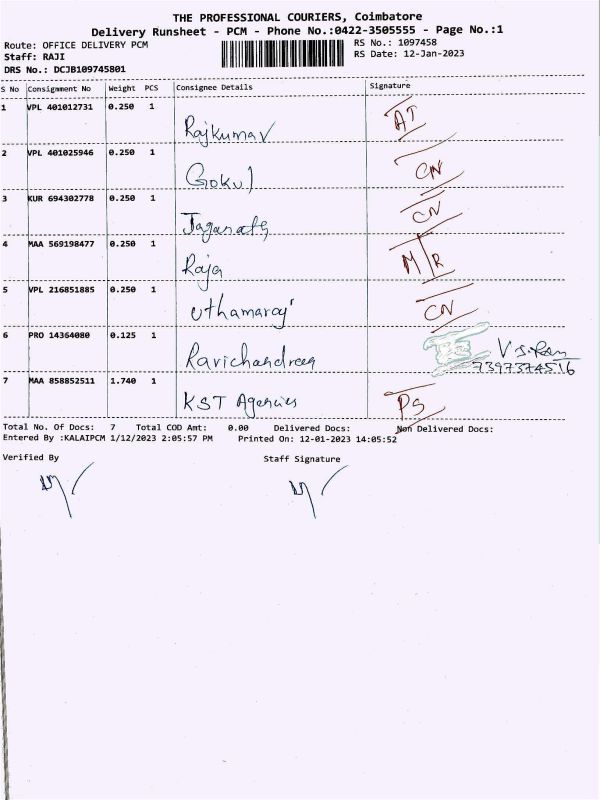 THE PROFESSIONAL COURIERS, Coimbatore
Delivery Runsheet - PCM - Phone No.:0422-3505555 - Page No.:1
Route: OFFICE DELIVERY PCM RS No.: 1097458
Staff: RAJI RS Date: 12-Jan-2023
DRS No.: DCJB109745801
S No Consignment No Weight PCS Consignee Details Signature
1 VPL 401012731 0.250 1
Rajkumar AT
2 VPL 401025946 0.250 1
Gokul CN
3 KUR 694302778 0.250 1
Jaganath CN
4 MAA 569198477 0.250 1
Raja M/R
5 VPL 216851885 0.250 1
Uthamaraj CN
6 PRO 14364080 0.125 1
Ravichandreen
7397374516
7 MAA 858852511 1.740 1
KST Agencies PS
Total No. Of Docs: 7 Total COD Amt: 0.00 Delivered Docs: Non Delivered Docs:
Entered By :KALAIPCM 1/12/2023 2:05:57 PM Printed On: 12-01-2023 14:05:52
Verified By Staff Signature